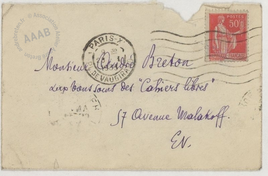 AAAB
PARIS
VAUGIRARD
POSTES
50
Monsieur André Breton
aux bons soins des "Cahiers libres"
57 Avenue Malakoff
EV.